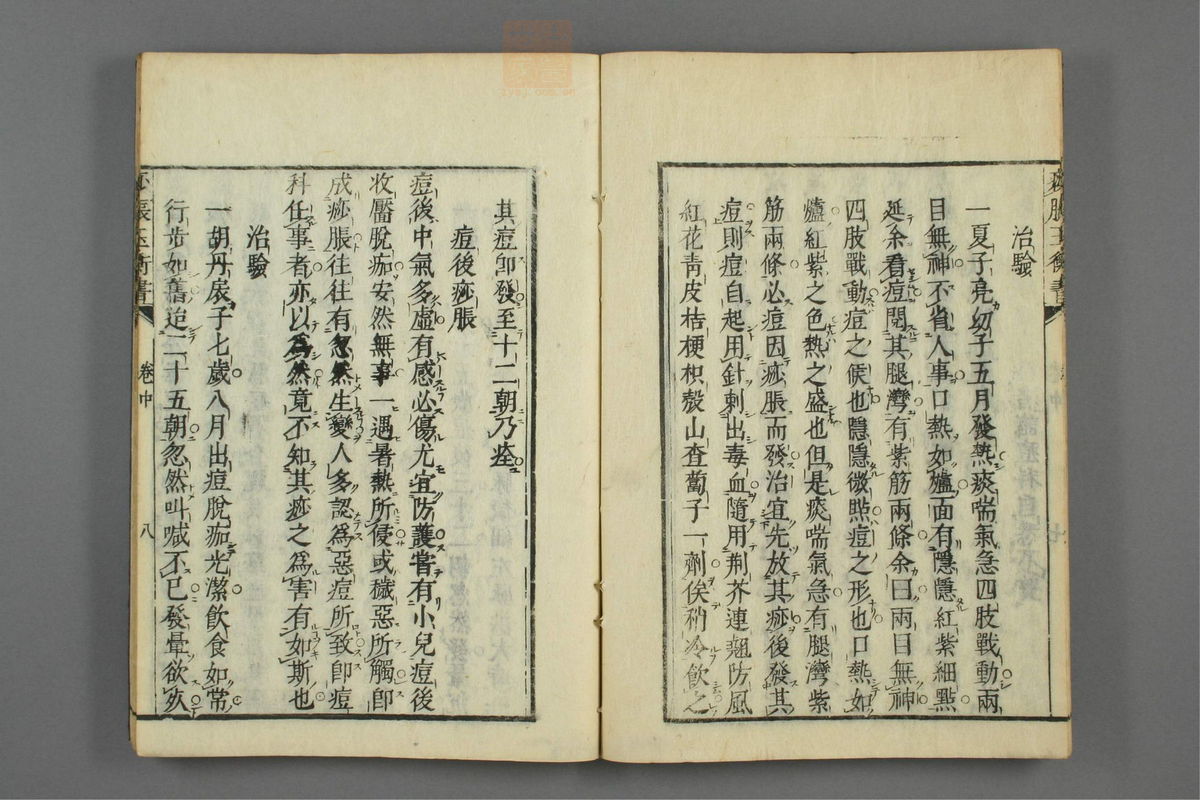 治驗
一夏子亮幼子五月發熱痰喘氣急四肢戰動兩
目無神不省人事口熱如爐面有隱隱紅紫細點
延余看痘閱其腿灣有紫筋兩條余曰兩目無神
四肢戰動痘之候也隱隱微點痘之形也口熱如
爐紅紫之色熱之盛也但是痰喘氣急有腿灣紫
筋兩條必痘因痧脹而發治宜先放其痧後發其
痘則痘自起用針刺出毒血隨用荆芥連翹防風
紅花青皮桔梗枳殼山查蔔子一劑俟稍冷飲之
其痘卽發至十二朝乃痊
痘後痧脹
痘後中氣多虛有感必傷尤宜防護嘗有小兒痘後
收靨脫痂安然無事一遇暑熱所侵或穢惡所觸卽
成痧脹往往有忽然生變人多認爲惡痘所致卽痘
科任事者亦以爲然竟不知其痧之爲害有如斯也
治驗
一胡丹扆子七歲八月出痘脫痂光潔飲食如常
行步如舊迨二十五朝忽然叫喊不已發暈欲死
痧脹玉衡書
卷中
八